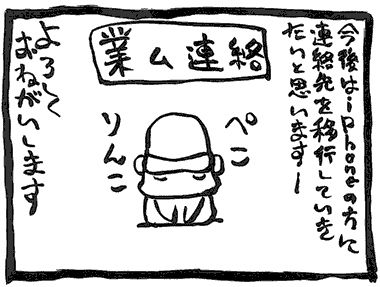 業ム連絡
今後はiphoneの方に
連絡先を移行していき
たいと思いますー
ぺこ
りんこ
よろしく
おねがいします